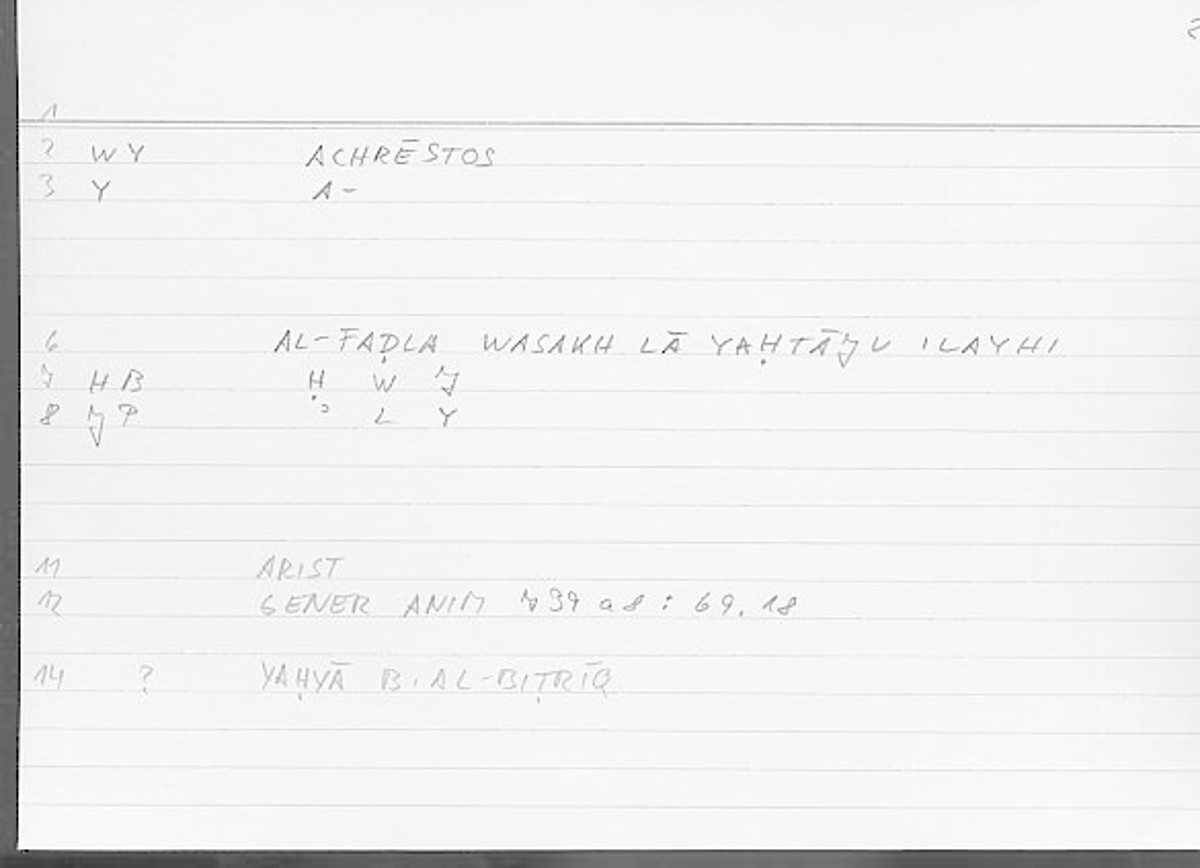 2
1
2 WY ACHRĒSTOS
3 Y A-
6 AL-FAḌLA WASAKH LĀ YAḤTĀJU ILAYHI
7 HB Ḥ W J
8 JP ʾ L Y
11 ARIST
12 GENER ANIM 739 a8 : 69.18
14 ? YAḤYĀ B. AL-BIṬRĪQ